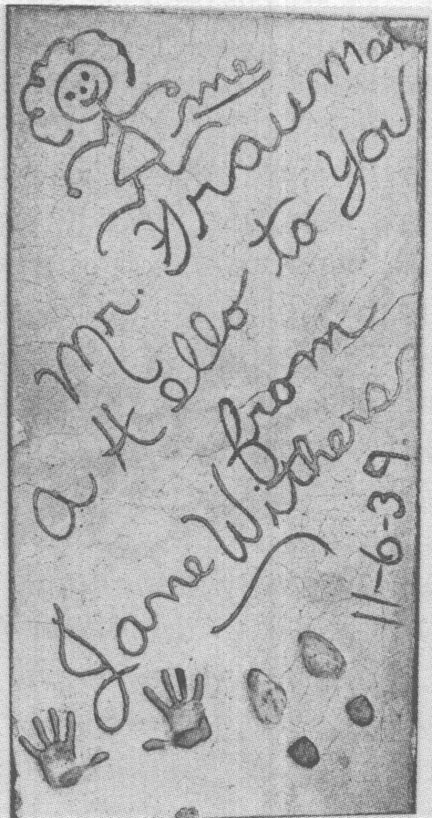 me
Mr. Grauman
a Hello to You
from
Jane Withers
11-6-39